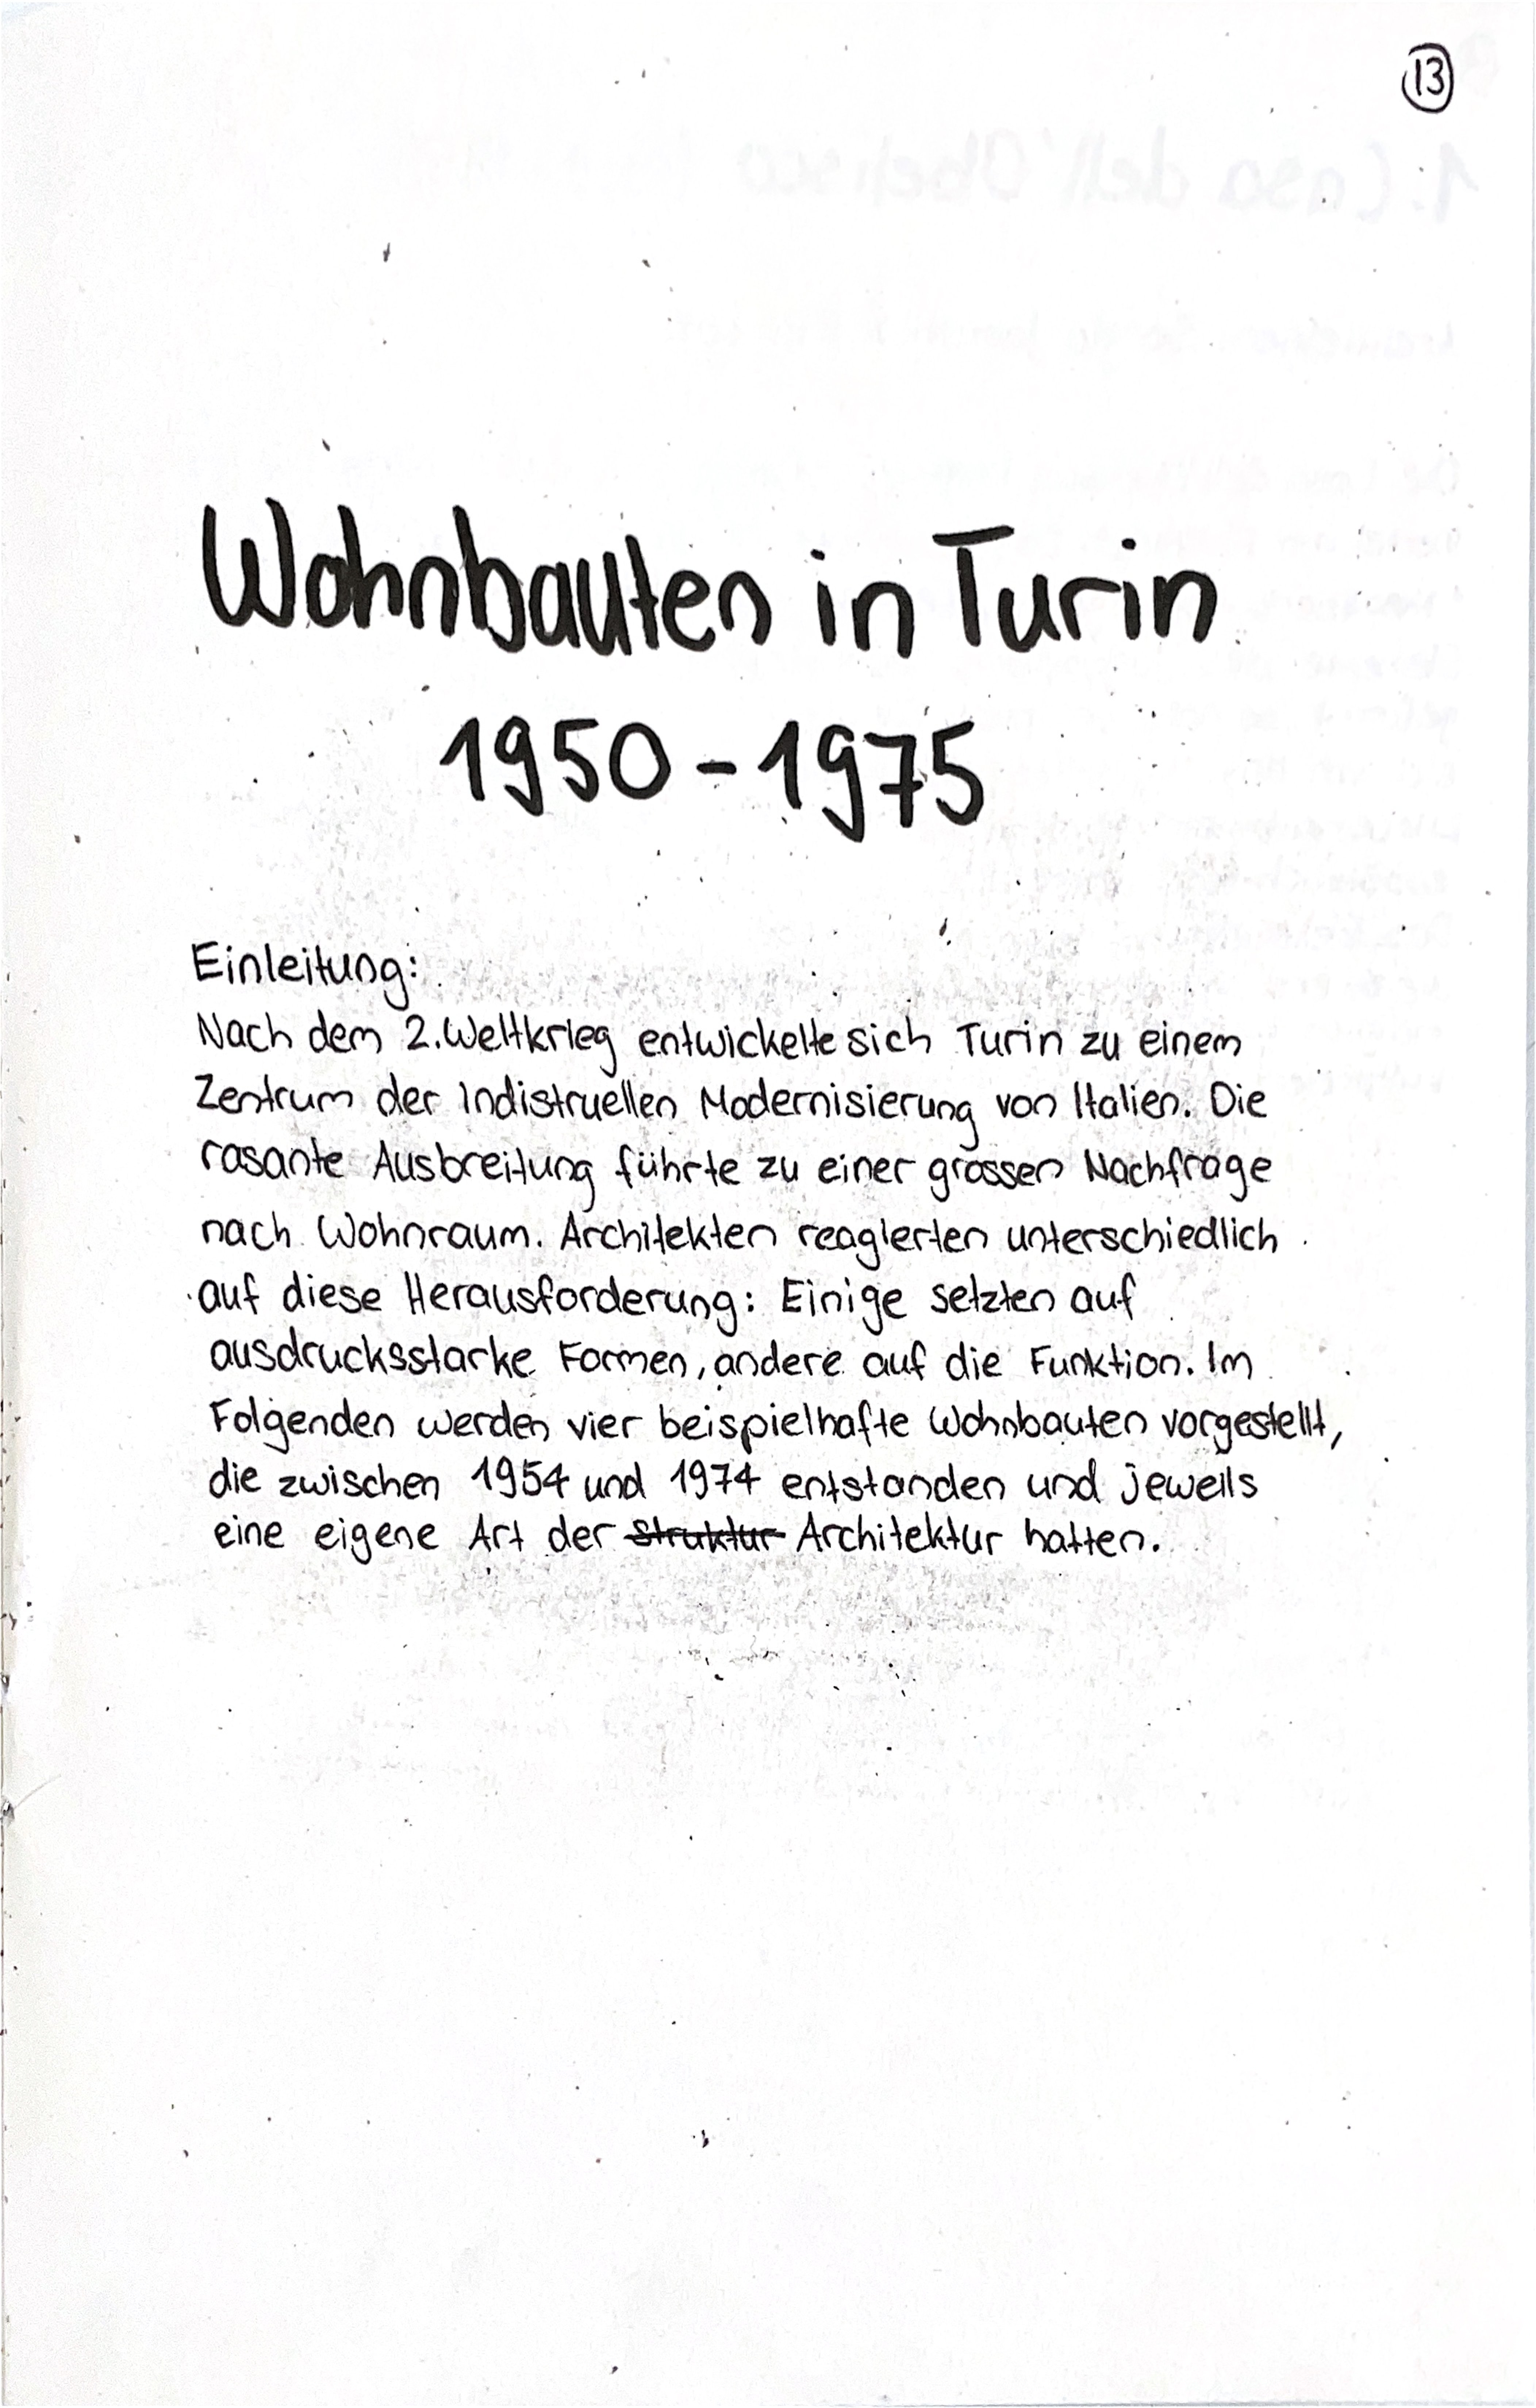 13
Wohnbauten in Turin
1950-1975
Einleitung:
Nach dem 2.Weltkrieg entwickelte sich Turin zu einem
Zentrum der Indistruellen Modernisierung von Italien. Die
rasante Ausbreitung führte zu einer grossen Nachfrage
nach Wohnraum. Architekten reagierten unterschiedlich
auf diese Herausforderung: Einige setzten auf
ausdrucksstarke Formen, andere auf die Funktion. Im
Folgenden werden vier beispielhafte Wohnbauten vorgestellt,
die zwischen 1954 und 1974 entstanden und jeweils
eine eigene Art der Struktur Architektur hatten.